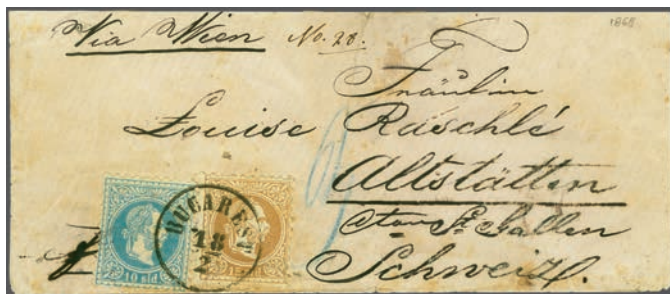 Via Wien No. 28.
1868
Fräulein
Louise Raschlé
Altstätten
Cton St. Gallen
Schweiz.
BUCAREST
18
2
10 sld